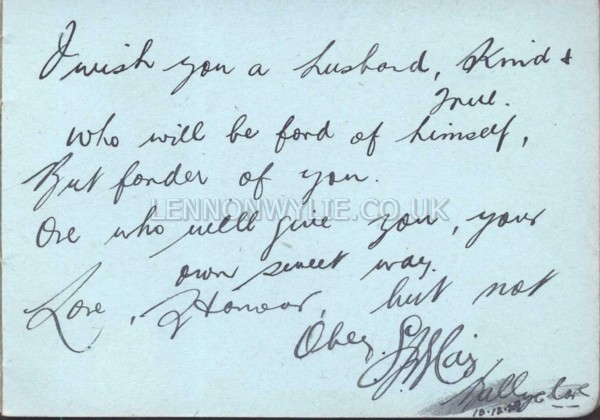 I wish you a husband, Kind &
True.
Who will be fond of himself,
But fonder of you.
One who will give you, your
own sweet way.
Love, Honour, but not
Obey.
LENNONWYLIE.CO.UK